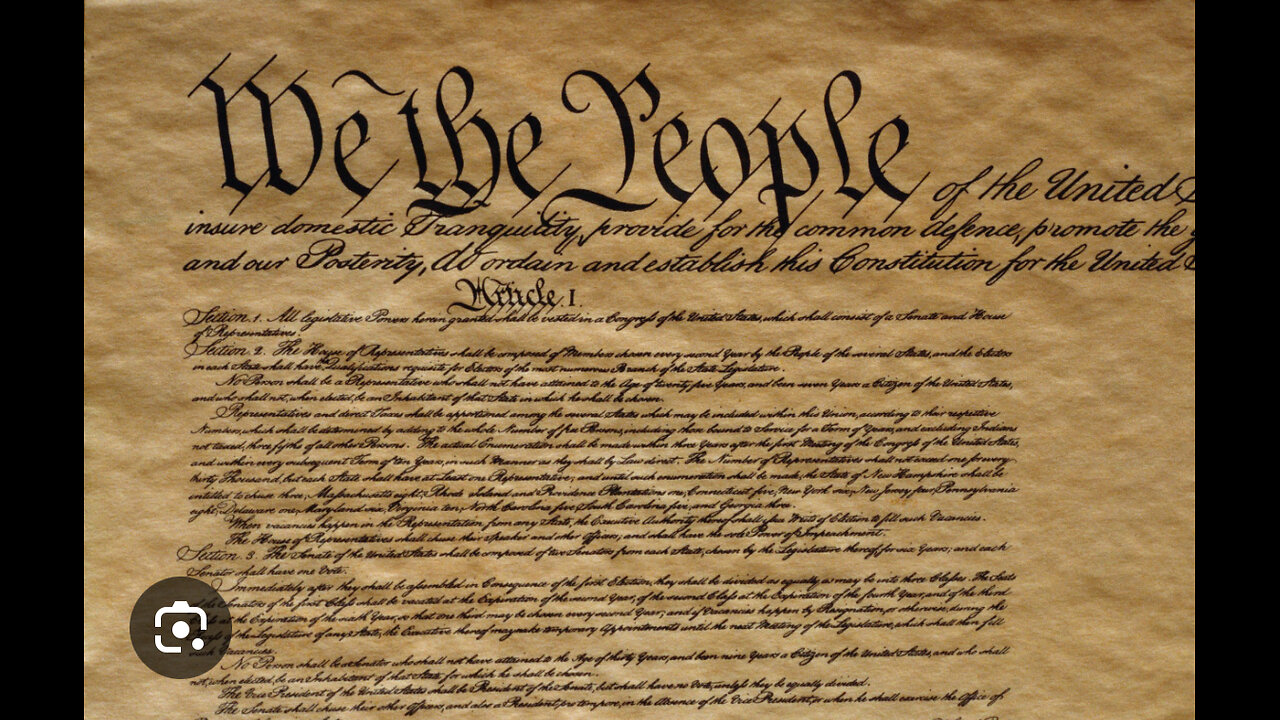 We the People of the United
insure domestic Tranquility, provide for the common defence, promote the
and our Posterity, do ordain and establish this Constitution for the United
Article. I.
Section. 1. All legislative Powers herein granted shall be vested in a Congress of the United States, which shall consist of a Senate and House
of Representatives.
Section. 2. The House of Representatives shall be composed of Members chosen every second Year by the People of the several States, and the Electors
in each State shall have Qualifications requisite for Electors of the most numerous Branch of the State Legislature.
No Person shall be a Representative who shall not have attained to the Age of twenty five Years, and been seven Years a Citizen of the United States,
and who shall not, when elected, be an Inhabitant of that State in which he shall be chosen.
Representatives and direct Taxes shall be apportioned among the several States which may be included within this Union, according to their respective
Numbers, which shall be determined by adding to the whole Number of free Persons, including those bound to Service for a Term of Years, and excluding Indians
not taxed, three fifths of all other Persons. The actual Enumeration shall be made within three Years after the first Meeting of the Congress of the United States,
and within every subsequent Term of ten Years, in such Manner as they shall by Law direct. The Number of Representatives shall not exceed one for every
thirty Thousand, but each State shall have at Least one Representative; and until such enumeration shall be made, the State of New Hampshire shall be
entitled to chuse three, Massachusetts eight, Rhode Island and Providence Plantations one, Connecticut five, New York six, New Jersey four, Pennsylvania
eight, Delaware one, Maryland six, Virginia ten, North Carolina five, South Carolina five, and Georgia three.
When vacancies happen in the Representation from any State, the Executive Authority thereof shall issue Writs of Election to fill such Vacancies.
The House of Representatives shall chuse their Speaker and other Officers; and shall have the sole Power of Impeachment.
Section. 3. The Senate of the United States shall be composed of two Senators from each State, chosen by the Legislature thereof, for six Years; and each
Senator shall have one Vote.
Immediately after they shall be assembled in Consequence of the first Election, they shall be divided as equally as may be into three Classes. The Seats
of the Senators of the first Class shall be vacated at the Expiration of the second Year, of the second Class at the Expiration of the fourth Year, and of the third
at the Expiration of the sixth Year, so that one third may be chosen every second Year; and if Vacancies happen by Resignation, or otherwise, during the
of the Legislature of any State, the Executive thereof may make temporary Appointments until the next Meeting of the Legislature, which shall then fill
such Vacancies.
No Person shall be a Senator who shall not have attained to the Age of thirty Years, and been nine Years a Citizen of the United States, and who shall
not, when elected, be an Inhabitant of that State for which he shall be chosen.
The Vice President of the United States shall be President of the Senate, but shall have no Vote, unless they be equally divided.
The Senate shall chuse their other Officers, and also a President pro tempore, in the Absence of the Vice President, or when he shall exercise the Office of